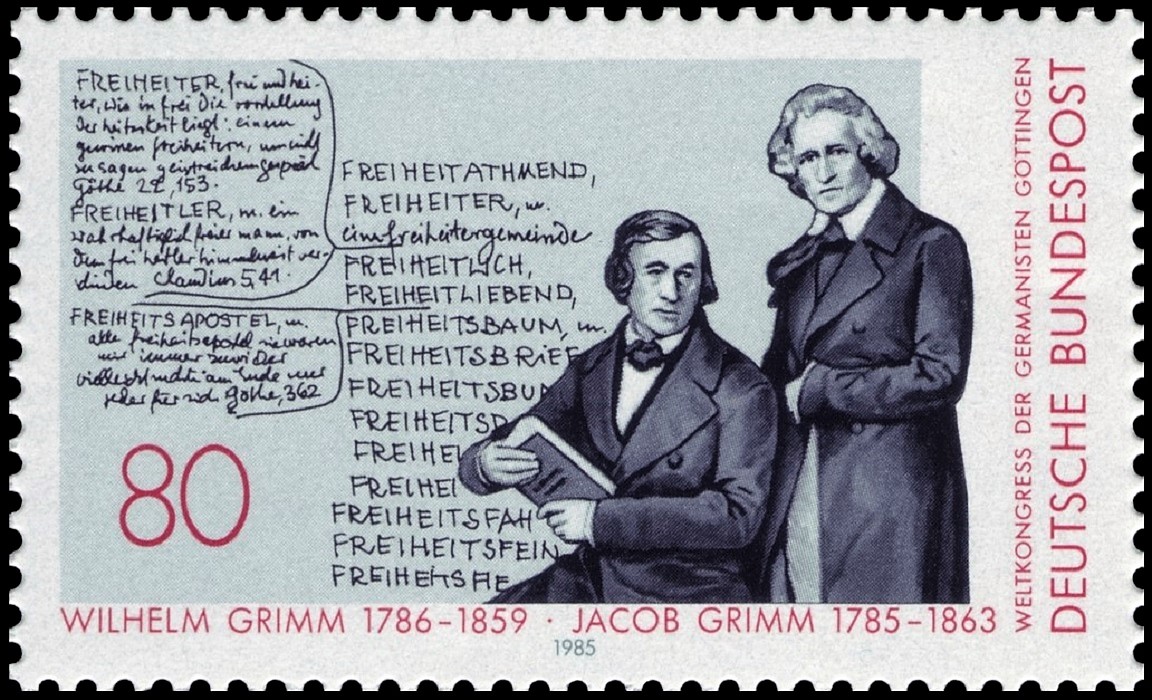 FREIHEITER, frei und hei-
ter, wie in frei die vorstellung
der heiterkeit liegt: einem
freiheitern, um nicht
zu sagen geistreichem gespräch
Göthe 22, 153.
FREIHEITLER, m. ein
wahrhaftig freier mann, von
dem freiheitler himmelweit ver-
schieden Claudius 5, 41.
FREIHEITSAPOSTEL, m.
alle freiheitsapostel sie waren
mir immer zuwider
willkür suchte am Ende nur
jeder für sich Göthe, 362
80
FREIHEITATHMEND,
FREIHEITER, m.
eine freiheitergemeinde
FREIHEITLICH,
FREIHEITLIEBEND,
FREIHEITSBAUM, m.
FREIHEITSBRIEF
FREIHEITSBUN
FREIHEITSD
FREIHEI
FREIHEI
FREIHEITSFAH
FREIHEITSFEIN
FREIHEITSFE
WILHELM GRIMM 1786–1859 · JACOB GRIMM 1785–1863
1985
WELTKONGRESS DER GERMANISTEN GÖTTINGEN
DEUTSCHE BUNDESPOST